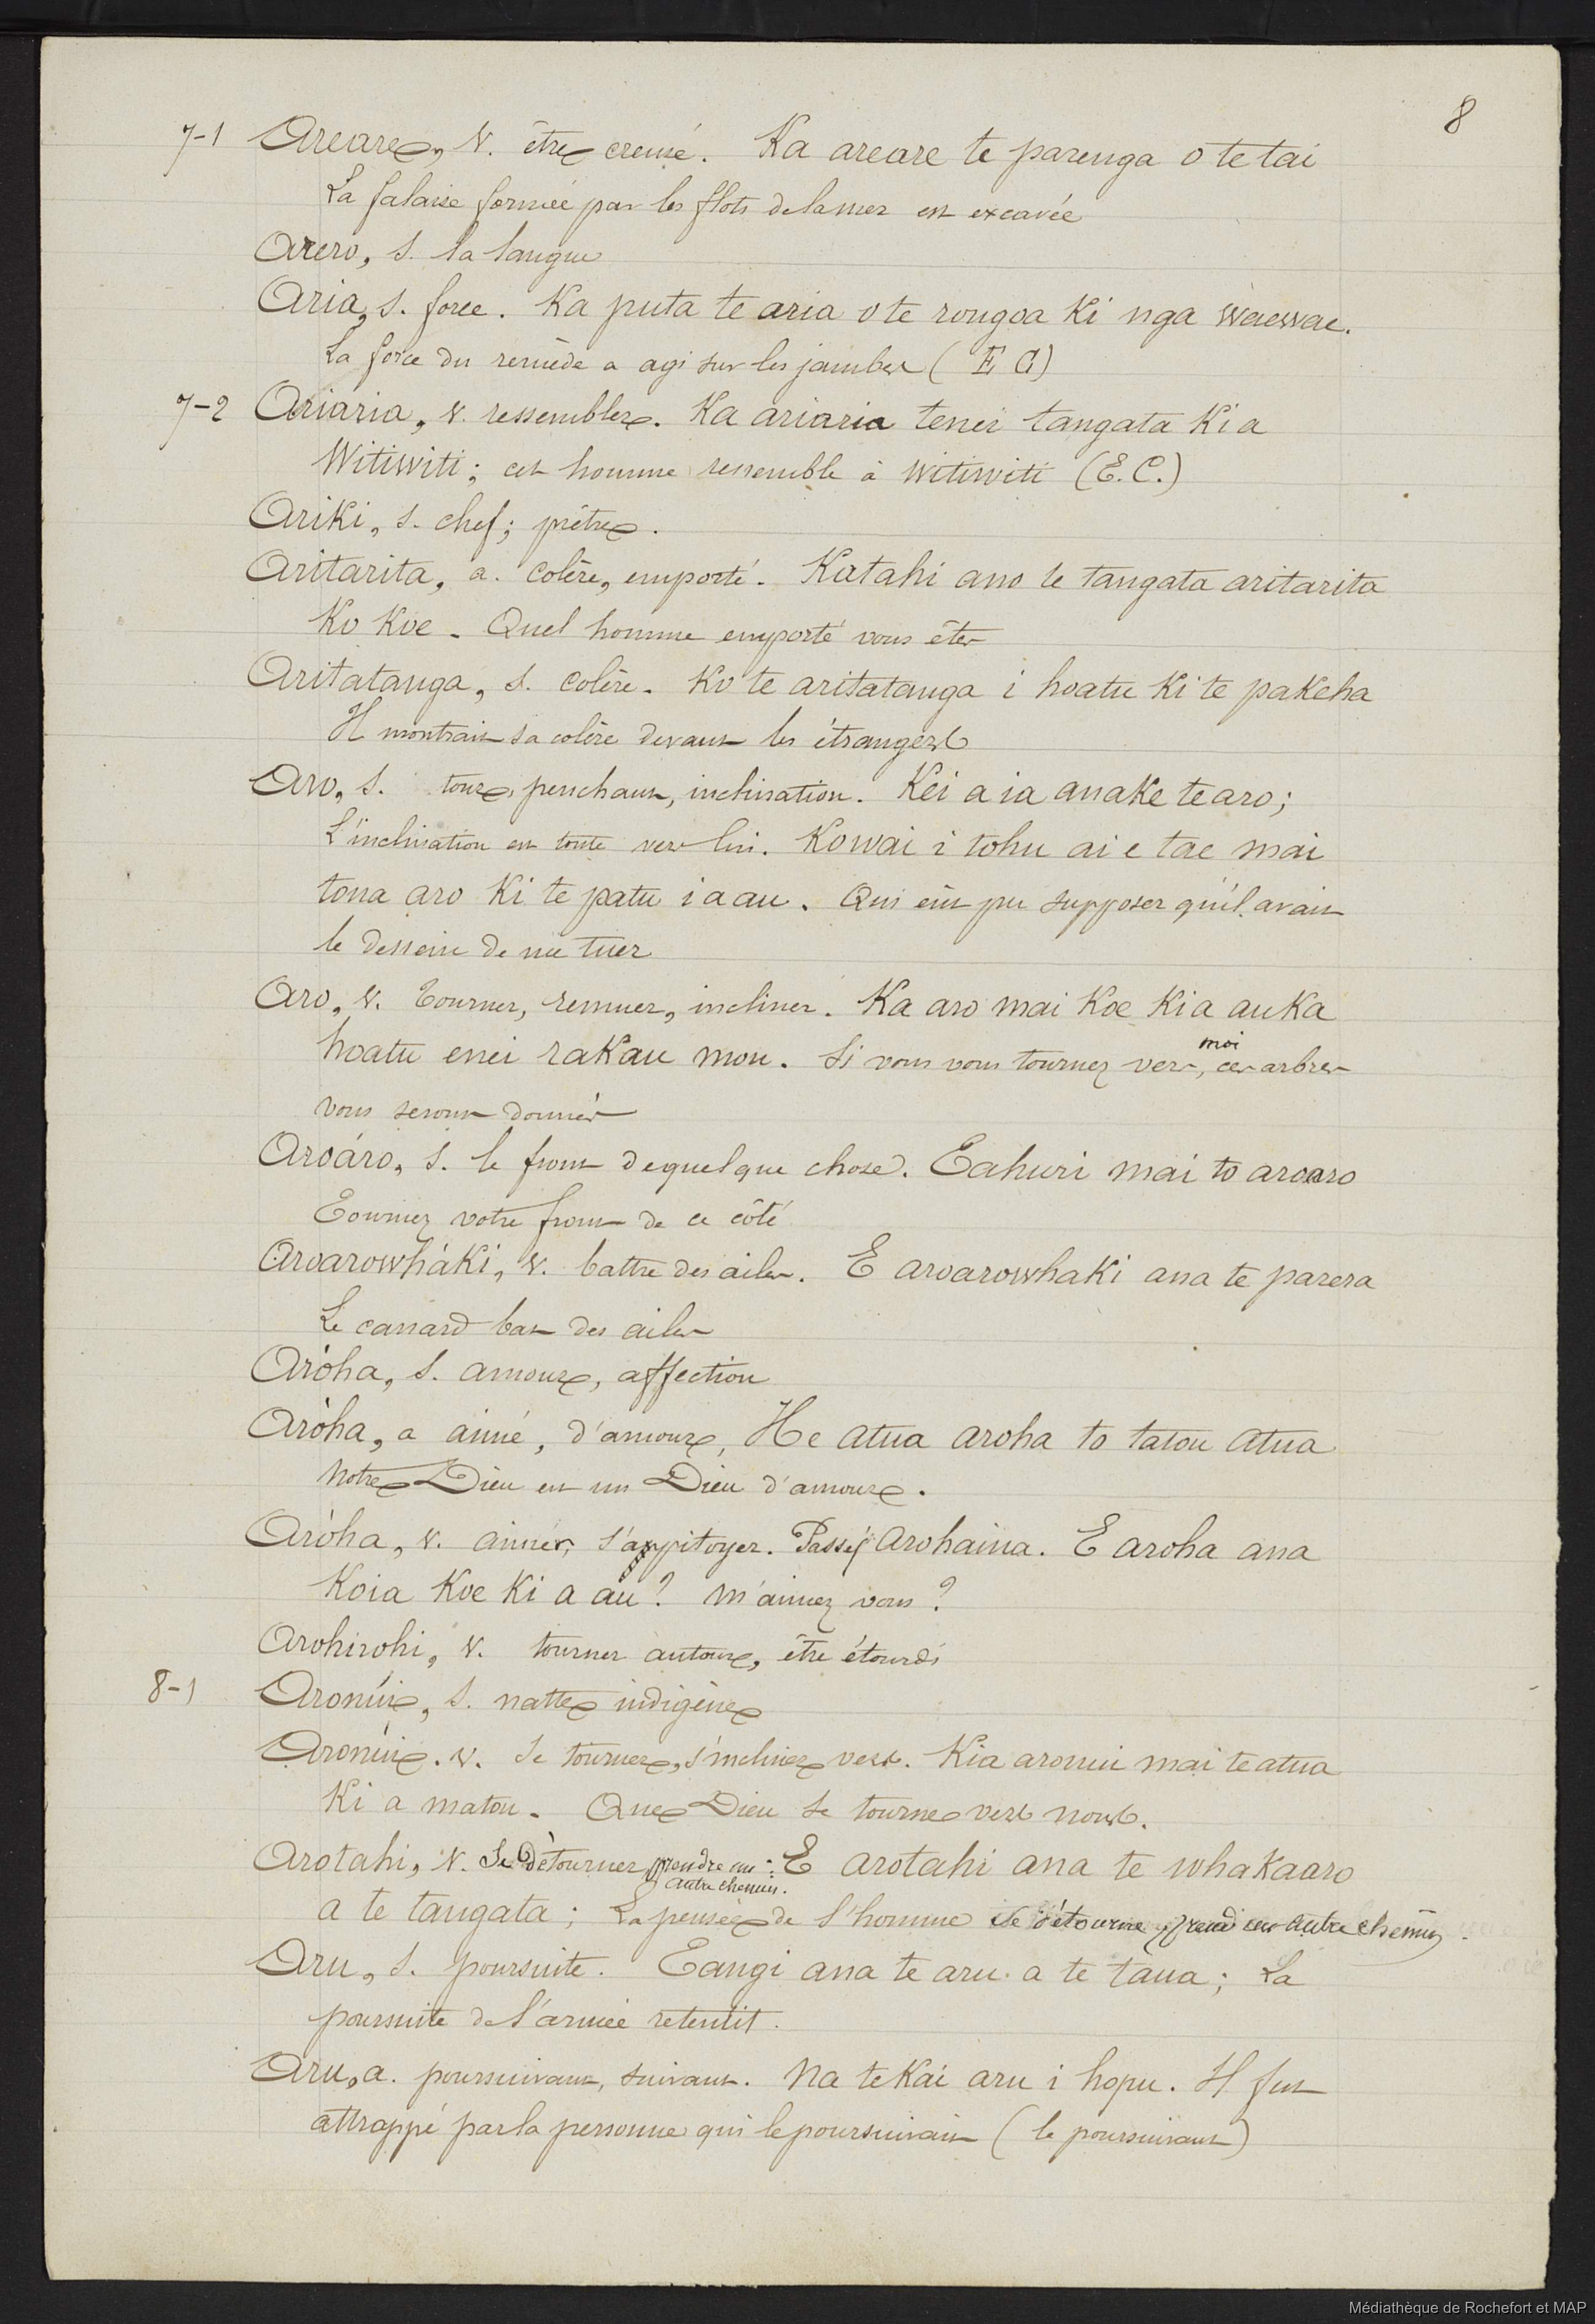 8
7-1 Areare, v. être creusé. Ka areare te parenga o te tai
La falaise formée par les flots de la mer est excavée
Arero, s. la langue
Aria, s. force. Ka puta te aria o te rongoa Ki nga waewae.
La force du remède a agi sur les jambes (E C)
7-2 Ariaria, v. ressembler. Ka ariaria tenei tangata Ki a
Witiwiti; cet homme ressemble à Witiwiti (E. C.)
Ariki, s. chef; prêtre.
Aritarita, a. colère, emporté. Katahi ano te tangata aritarita
Ko Koe. Quel homme emporté vous êtes
Aritatanga, s. colère. Ko te aritatanga i hoatu Ki te pakeha
Il montrait sa colère devant les étrangers
Aro, s. tour, penchant, inclination. Kei a ia anake te aro;
L'inclination est toute vers lui. Kowai i tohu ai e tae mai
tona aro Ki te patu i a au. Qui eût pu supposer qu'il avait
le dessein de me tuer
Aro, v. Tourner, remuer, incliner. Ka aro mai Koe Ki a au Ka
hoatu enei rakau mou. Si vous vous tournez vers moi, ces arbres
vous seront donnés
Aroáro, s. le front de quelque chose. E ahuri mai to aroaro
Tournez votre front de ce côté
Aroarowháki, v. battre des ailes. E aroarowhaki ana te parera
Le canard bat des ailes
Aròha, s. amour, affection
Aròha, a aimé, d'amour, He atua aroha to tatou atua
Notre Dieu est un Dieu d'amour.
Aròha, v. aimer, s'appitoyer. Passif Arohaina. E aroha ana
Koia Koe Ki a au? M'aimez vous?
Arohirohi, v. tourner autour, être étourdi
8-1 Aronúi, s. natte indigène
Aronúi. v. Se tourner, s'incliner vers. Kia aronui mai te atua
Ki a matou. Que Dieu se tourne vers nous.
Arotahi, v. Se détourner, prendre un autre chemin. E arotahi ana te whakaaro
a te tangata; La pensée de l'homme se détourne, prend un autre chemin.
Aru, s. poursuite. E angi ana te aru a te taua; La
poursuite de l'armée retentit.
Aru, a. poursuivant, suivant. Na te Kai aru i hopu. Il fut
attrappé par la personne qui le poursuivait (le poursuivant)
Médiathèque de Rochefort et MAP